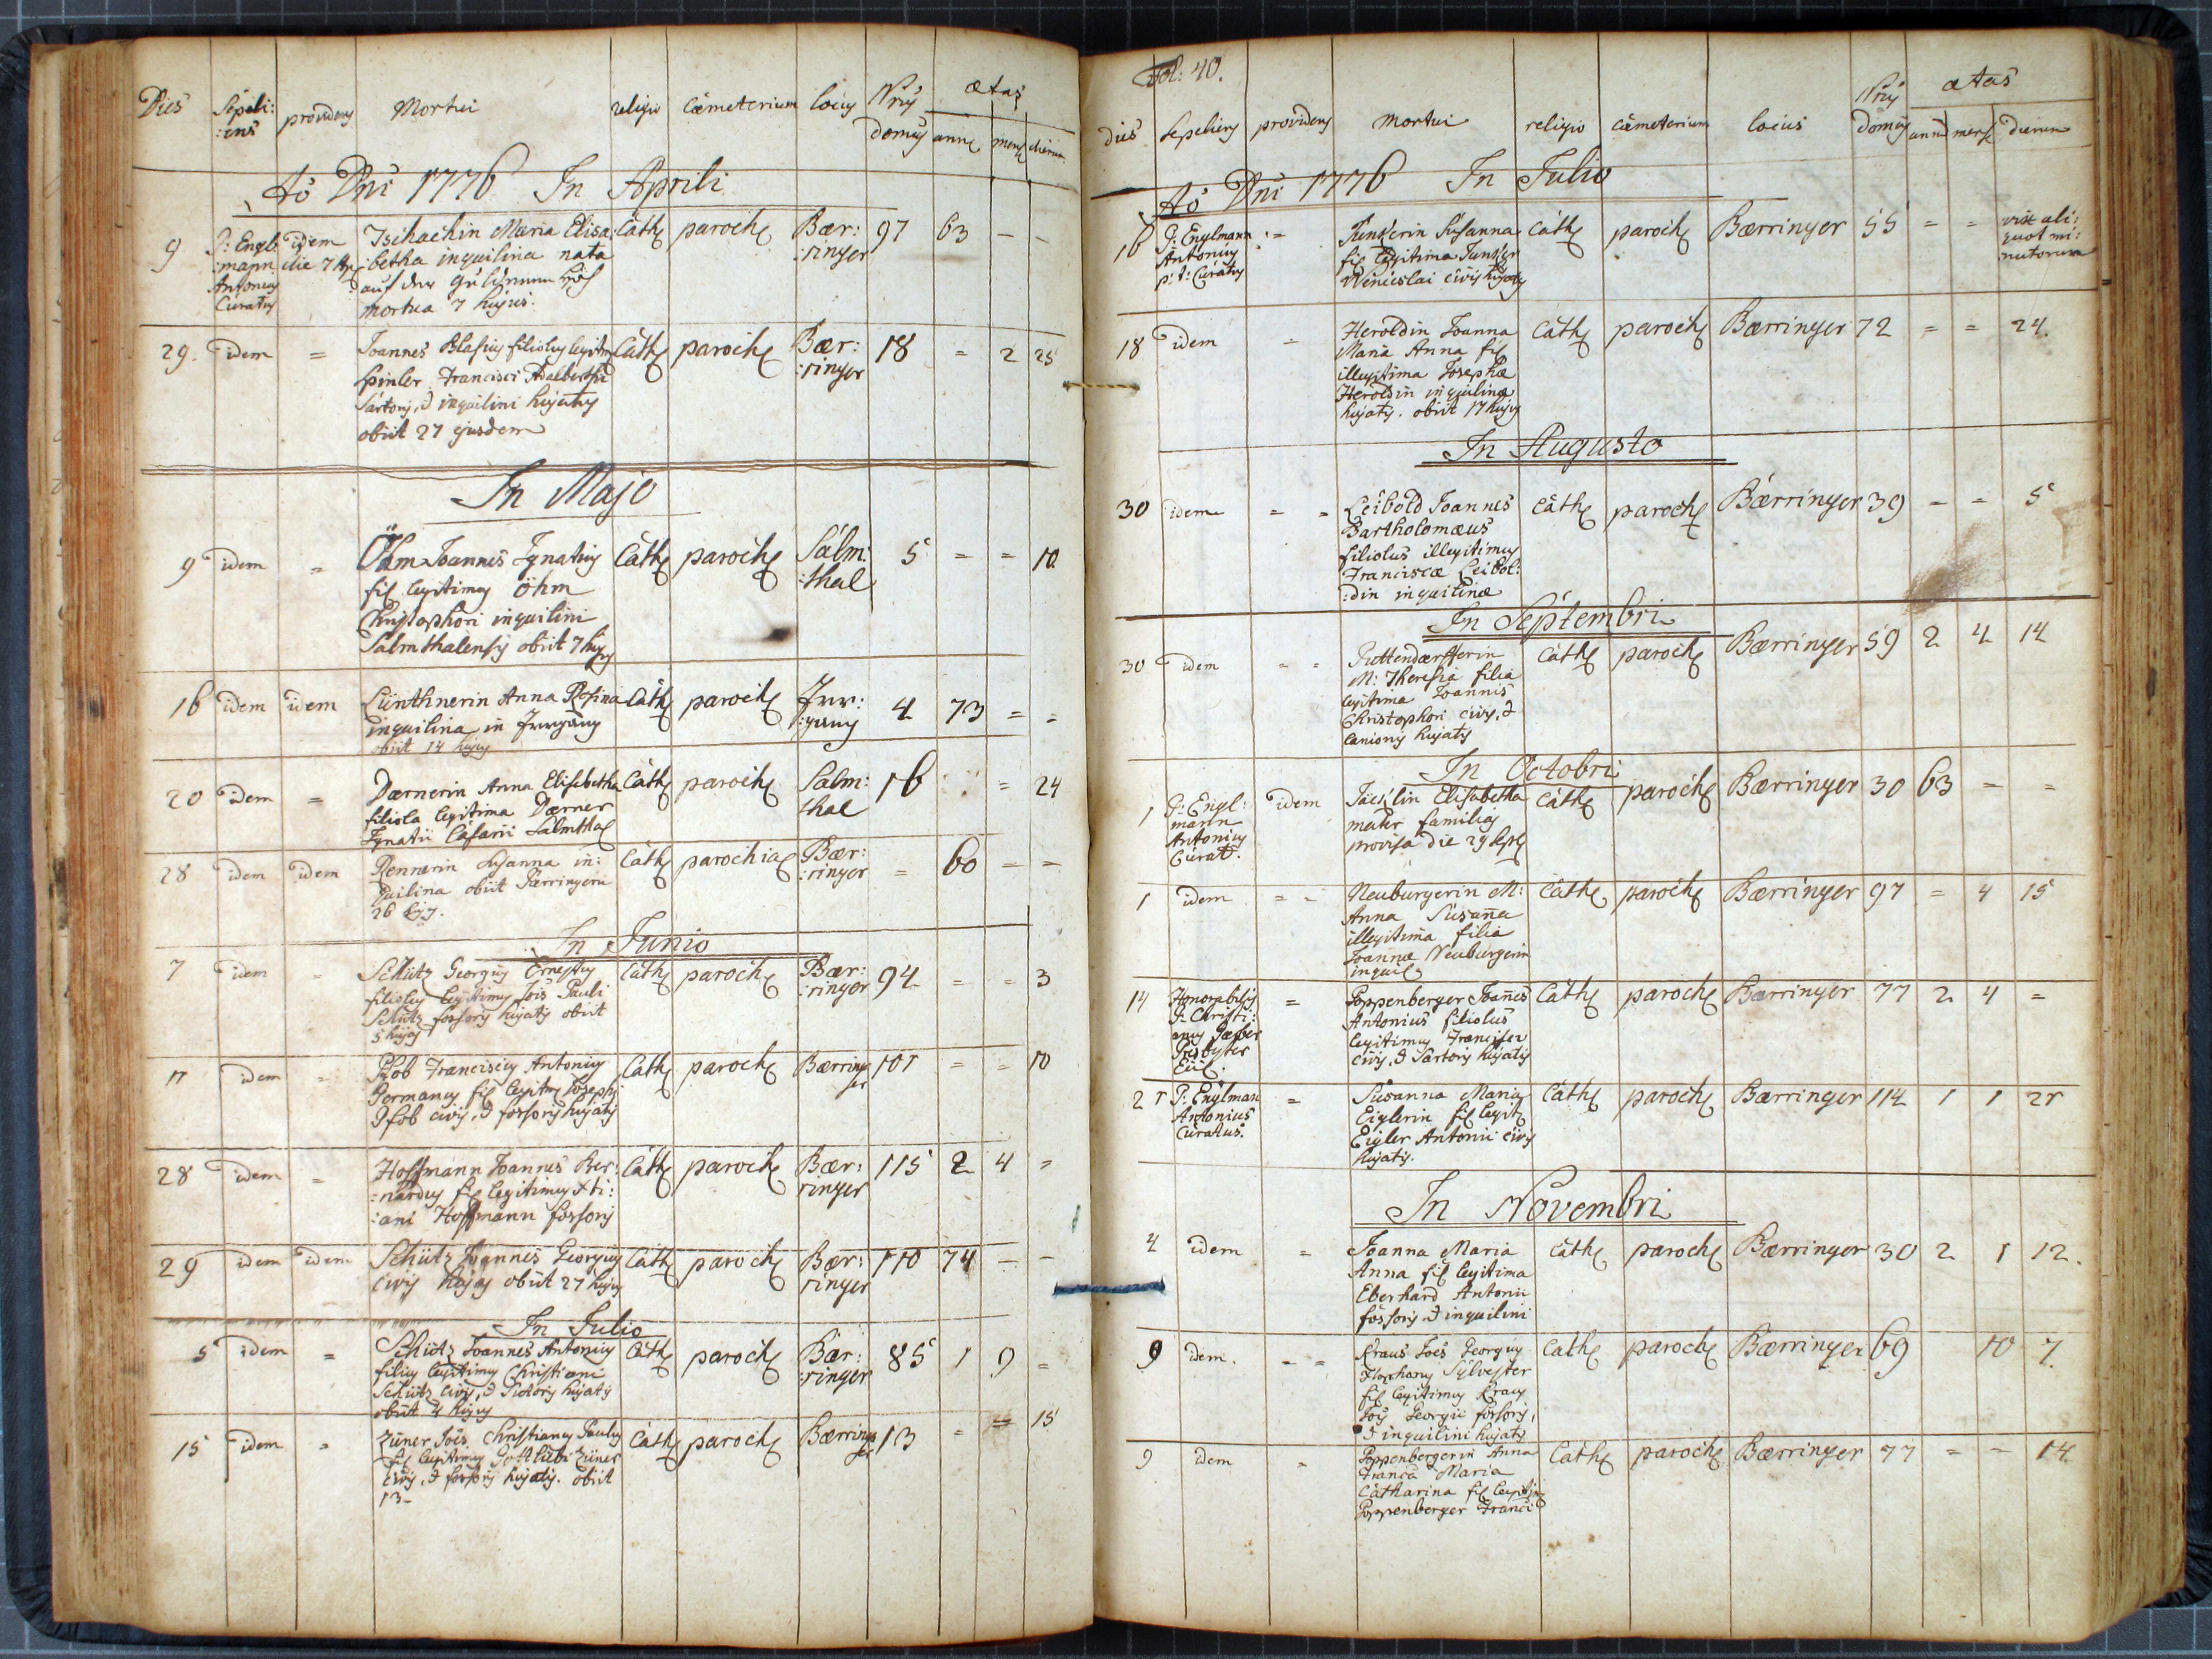 Dies Sepeli: providens Mortui religio Cæmeterium locus Nrus ætas
:ens domus anni mens dierum
Aō Dni 1776 In Aprili
9 P: Engl idem Tschachin Maria Elisa: Cath paroch Bær: 97 63 - -
:mann die 7 betha inquilina nata :ringer
Antonius auf der
Curatus mortua 7 hujus.
29. idem = Joannes Blasius filiolus legitim Cath paroch Bær: 18 = 2 25
Spinler Francisci Adalberthi :ringer
Sartoris, & inquilini hujatis
obiit 27 ejusdem
In Majo
9 idem = Öhm Joannes Ignatius Cath paroch Salm: 5 = = 10
fil legitimus Öhm :thal
Christophori inquilini
Salmthalensis obiit 7 hujus
16 idem idem Lünthnerin Anna Rosina Cath paroch Irr: 4 73 = =
inquilina in Irrgang :gang
obiit 14 hujus
20 idem = Dærnerin Anna Elisabetha Cath paroch Salm: 16 = 24
filiola legitima Dærner thal
Ignatii Casarii Salmthal
28 idem idem Rennerin Susanna in: Cath parochial Bær: = 60 - =
quilina obiit Bærringeri :ringer
26 huj.
In Junio
7 idem - Schütz Georgius Ernestus Cath paroch Bær: 94 = = 3
filiolus legitimus Jois Pauli :ringer
Schütz fossoris hujatis obiit
5 hujus
17 idem - Pfob Franciscus Antonius Cath paroch Bærring 101 = = 10
Germanus fil legitim Josephi er
Pfob civis, & fossoris hujatis
28 idem = Hoffmann Joannes Ber: Cath paroch Bær: 115 2 4 =
:nardus fil legitimus Xti: ringer
:ani Hoffmann fossoris
29 idem idem Schütz Joannes Georgius Cath paroch Bær: 110 74 - -
civis hujas obiit 27 hujus ringer
In Julio
5 idem = Schütz Joannes Antonius Cath paroch Bær: 85 1 9 =
filius legitimus Christiani :ringer
Schütz civis, & Sutoris hujatis
obiit 4 hujus
15 idem = Züner Jois Christianus Paulus Cath paroch Bærring 13 = = 15
fil legitimus Gottliebi Züner er
civis, & fossoris hujatis. obiit
13-
Fol: 40.
dies Sepeliens providens mortui religio Cæmeterium locus Nrus ætas
domus anni mens dierum
Aō Dni 1776 In Julio
16 P: Englmann = Junkerin Susanna Cath paroch Bærringer 55 = = vix ali:
Antonius fil legitima Junker quot mi:
p: t: Curatus Wenceslai civis hujatis nutorum
18 idem = Heroldin Joanna Cath paroch Bærringer 72 = = 24.
Maria Anna fil
illegitima Josephæ
Heroldin inquilinæ
hujatis. obiit 17 hujus
In Augusto
30 idem = = Leibold Joannes Cath paroch Bærringer 39 - - 5
Bartholomæus
filiolus illegitimus
Franciscæ Leibol:
:din inquilinæ
In Septembri
30 idem = = Puttendærfferin Cath paroch Bærringer 59 2 4 14
M: Theresia filia
legitima Joannis
Christophori civis, &
Lanionis hujatis
In Octobri
1 P: Engl: idem Elisabetha Cath paroch Bærringer 30 63 - -
mann mater familias
Antonius provisa die 29
Curat.
1 idem = = Neuburgerin M: Cath paroch Bærringer 97 = 4 15
Anna Susaña
illegitima filia
Joannæ Neuburgerin
inquil
14 Honorabilis = Poppenberger Joañes Cath paroch Bærringer 77 2 4 =
P: Christi: Antonius filiolus
anus legitimus Francisci
Presbyter civis, & Sartoris hujatis
21 P: Englman = Susanna Maria Cath paroch Bærringer 114 1 1 21
Antonius Eiglerin fil legit
Curatus. Eigler Antonii civis
hujatis.
In Novembri
4 idem = Joanna Maria Cath paroch Bærringer 30 2 1 12.
Anna fil legitima
Eberhard Antonii
fossoris & inquilini
9 idem. = = Kraus Jois Georgius Cath paroch Bærringer 69 10 7.
Sylvester
fil legitimus Kraus
Jois Georgii fossoris,
& inquilini hujatis
9 idem - Poppenbergerin Anna Cath paroch Bærringer 77 = - 14
Franca Maria
Catharina fil legitim
Poppenberger Franci